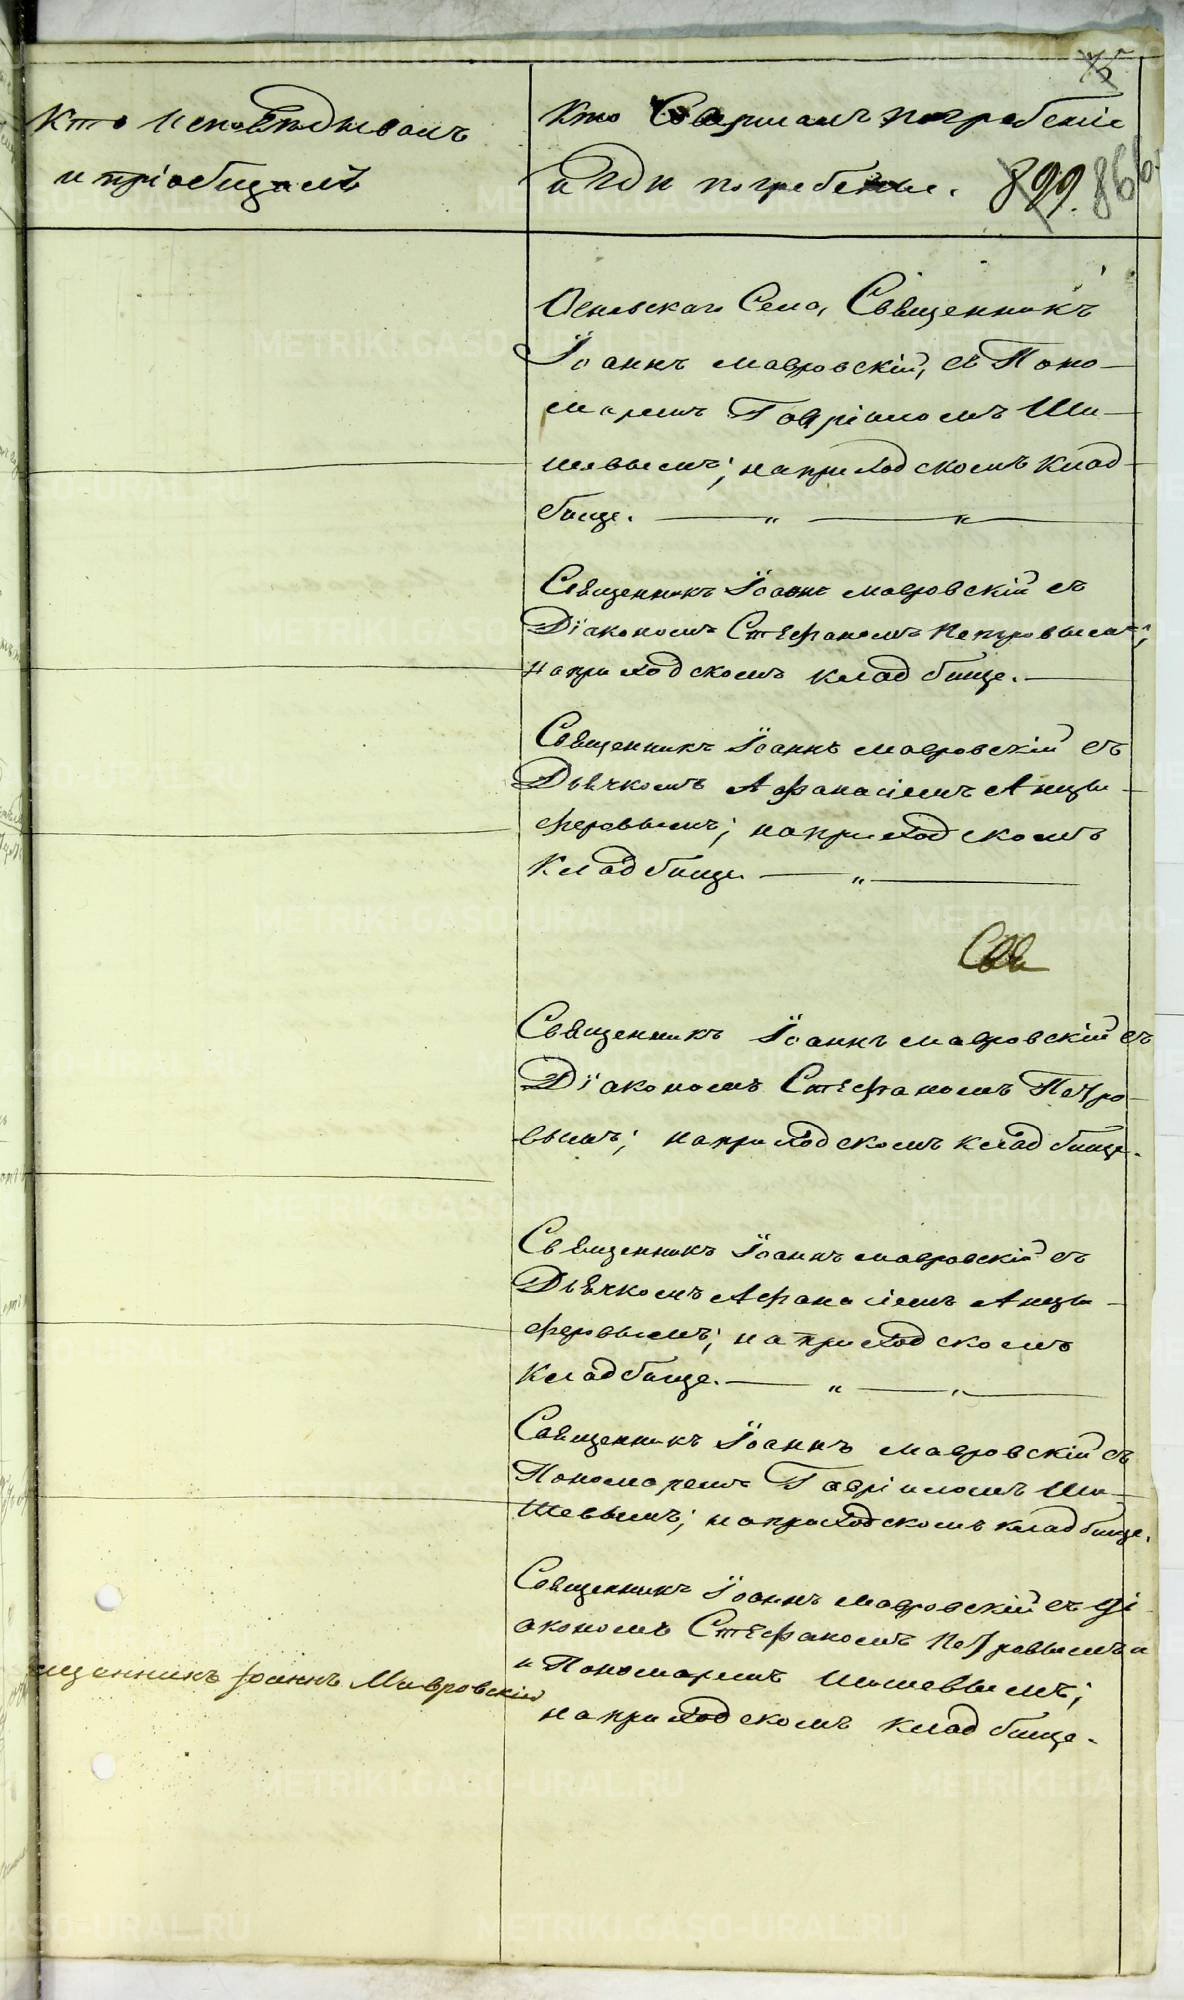 Кто исповѣдывалъ
и пріобщалъ
Кто Совершалъ погребеніе
и гдѣ погребены.
899. 866.
Священникъ
Іоаннъ Мавровскій, съ Поно-
маремъ Гавріиломъ Ши-
шевымъ; на приходскомъ клад-
бище.
Священникъ Іоаннъ Мавровскій съ
Діакономъ Стефаномъ Петровымъ;
на приходскомъ кладбище.
Священникъ Іоаннъ Мавровскій съ
Дьячкомъ Афанасіемъ Анцы-
феровымъ; на приходскомъ
кладбище
Священникъ Іоаннъ Мавровскій съ
Діакономъ Стефаномъ Петро-
вымъ; на приходскомъ кладбище.
Священникъ Іоаннъ Мавровскій съ
Дьячкомъ Афанасіемъ Анцы-
феровымъ; на приходскомъ
кладбище.
Священникъ Іоаннъ Мавровскій съ
Пономаремъ Гавріиломъ Ши-
шевымъ; на приходскомъ кладбище.
Священникъ Іоаннъ Мавровскій съ Ді
акономъ Стефаномъ Петровымъ и
и Пономаремъ Шишевымъ;
на приходскомъ кладбище.
щенникъ Іоаннъ Мавровскій
METRIKI.GASO-URAL.RU